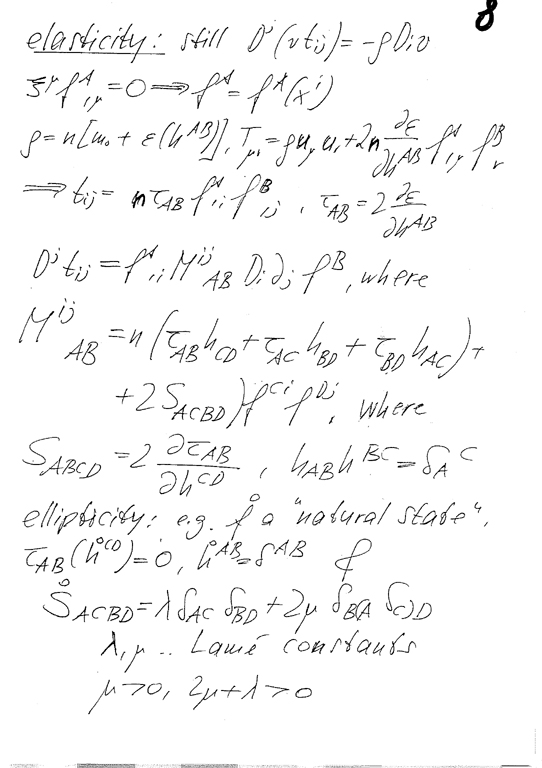 8
elasticity: still D^j(v t_ij) = -ρ D_i v
ξ^μ f^A_{,μ} = 0 ⟹ f^A = f^A(x^i)
ρ = n[m_0 + ε(h^{AB})], T_{μν} = ρ u_μ u_ν + 2n ∂ε/∂h^{AB} f^A_{,μ} f^B_{,ν}
⟹ t_ij = n τ_AB f^A_{,i} f^B_{,j} , τ_AB = 2 ∂ε/∂h^{AB}
D^j t_ij = f^A_{,i} M^{ij}_{AB} D_i ∂_j f^B, where
M^{ij}_{AB} = n(τ_AB h_CD + τ_AC h_BD + τ_BD h_AC) +
+ 2 S_ACBD) f^{Ci} f^{Dj}, where
S_ABCD = 2 ∂τ_AB/∂h^{CD} , h_AB h^{BC} = δ_A^C
ellipticity: e.g. f̊ a "natural state",
τ_AB(h̊^{CD}) = 0, h̊^{AB} = δ^{AB} f
S̊_ACBD = λ δ_AC δ_BD + 2μ δ_B(A δ_C)D
λ, μ .. Lamé constants
μ > 0, 2μ + λ > 0